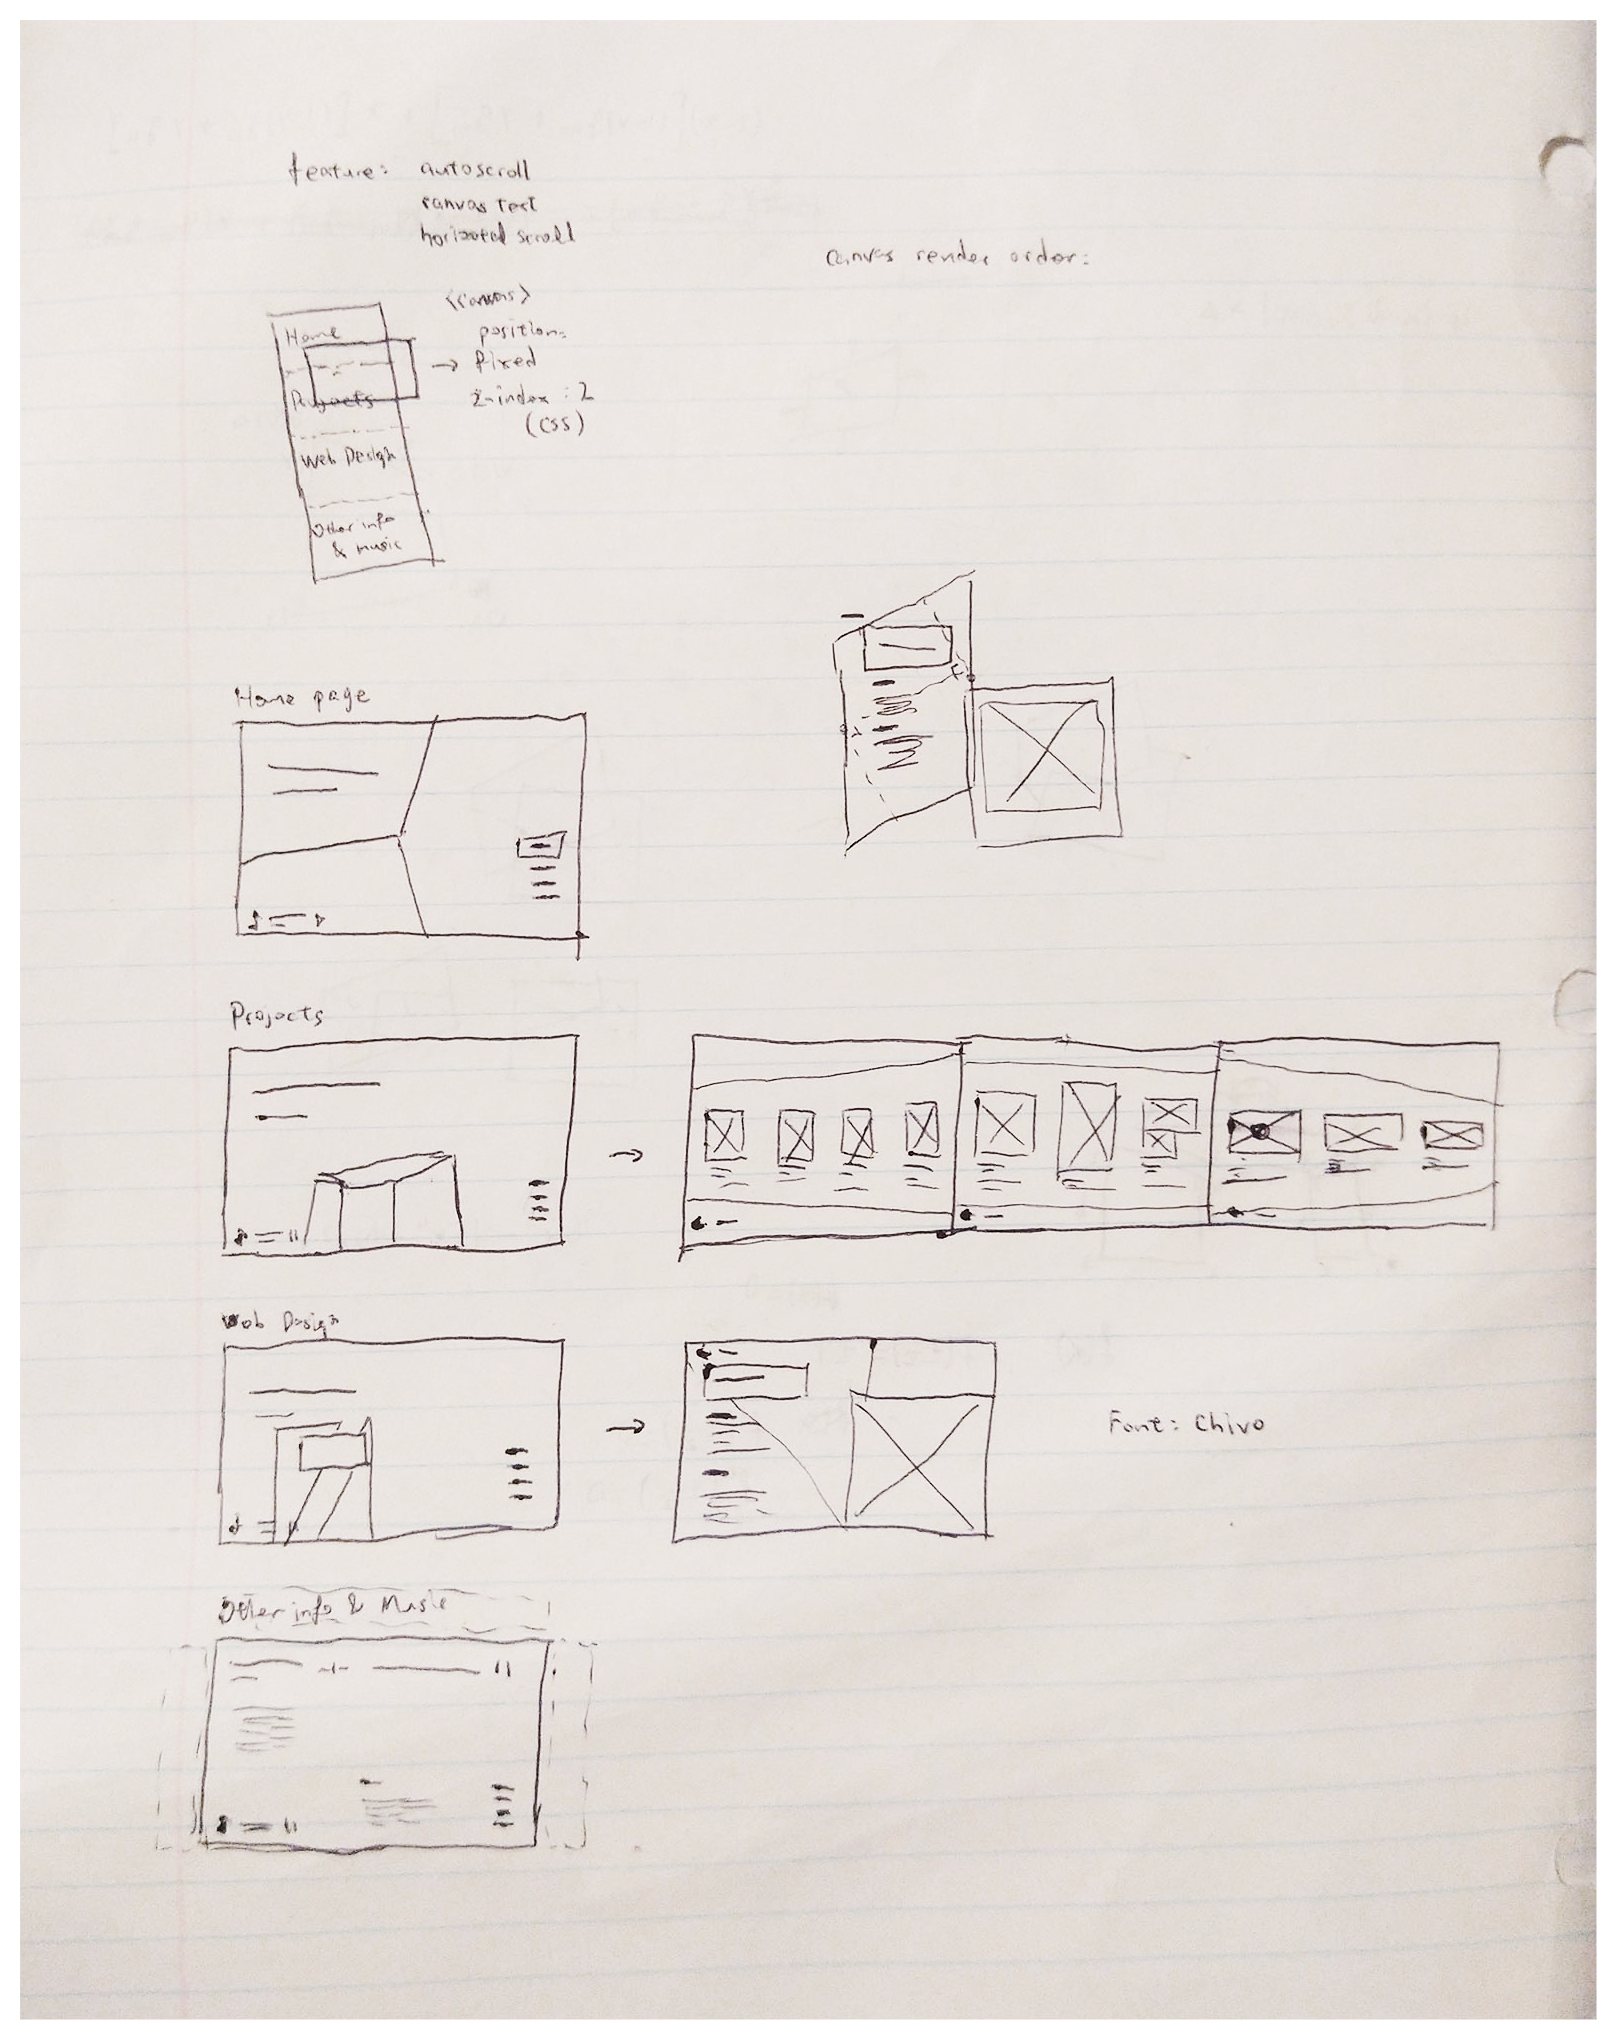 feature: autoscroll
canvas text
horizotal scroll
canvas render order:
<canvas>
position:
fixed
z-index : 2
(css)
Home
Projects
Web Design
Other info
& music
Home page
Projects
Web Design
Font: Chivo
Other info & Music